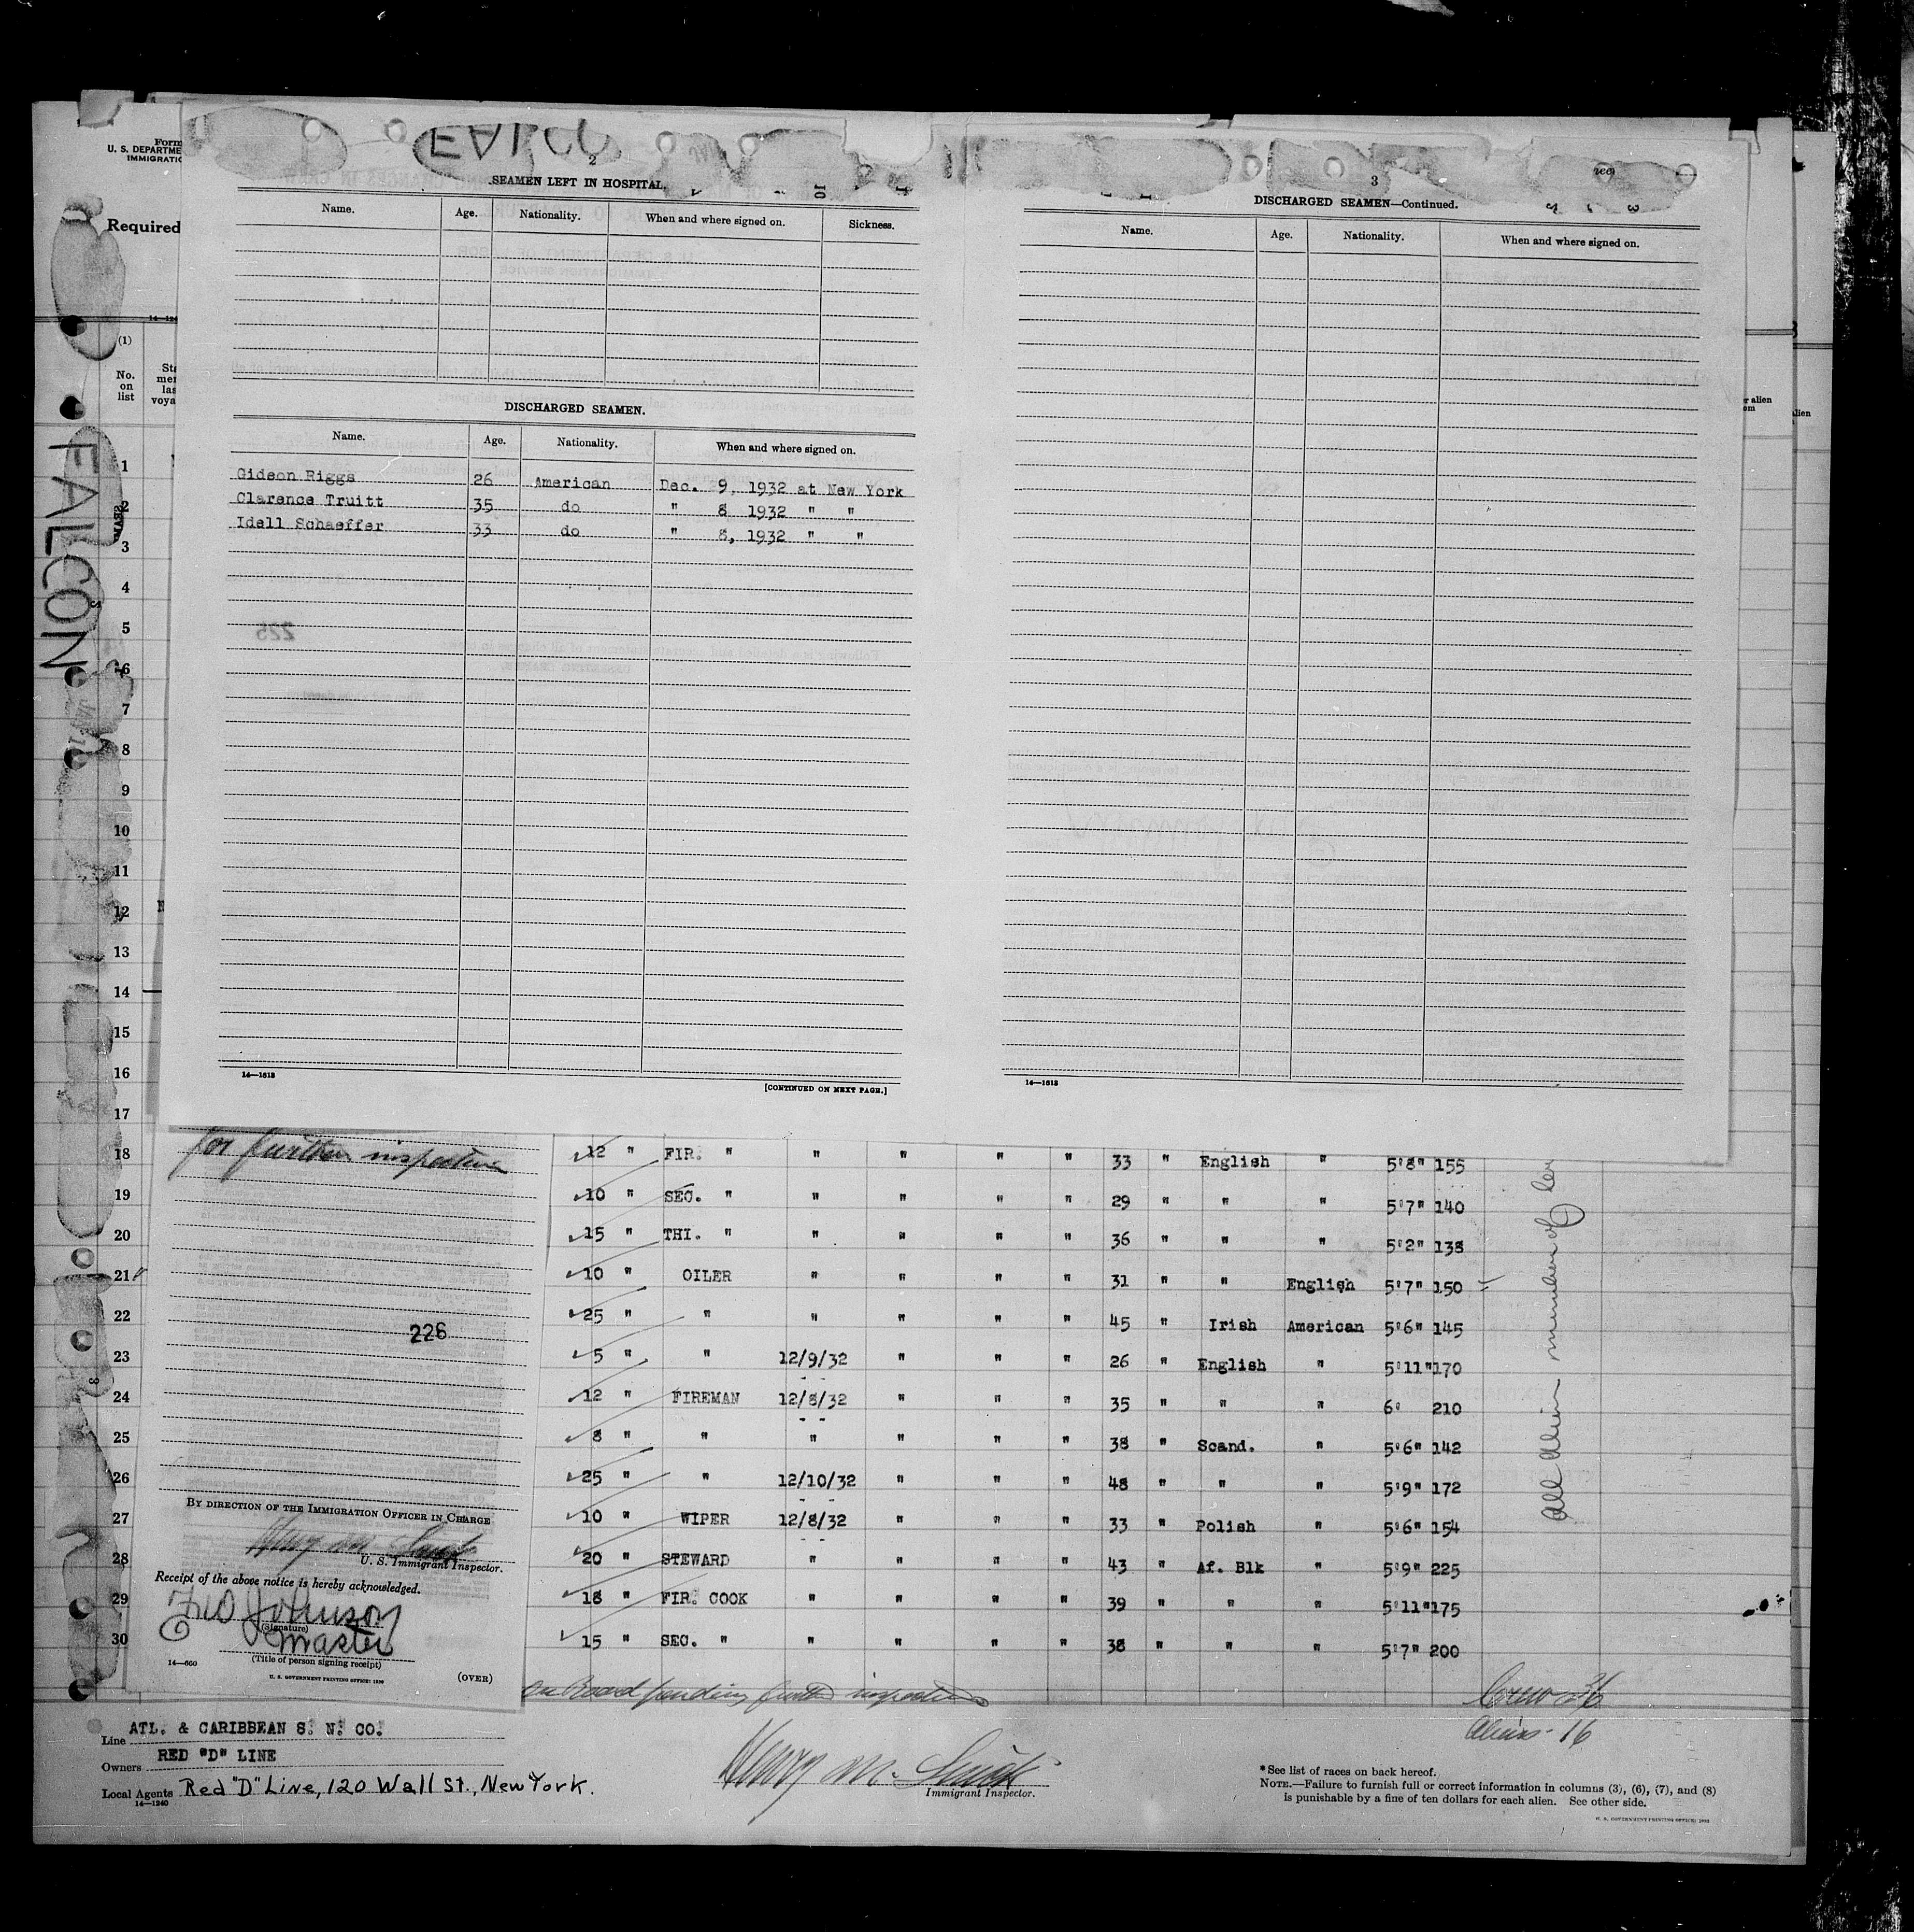 Form
U. S. DEPARTME
IMMIGRATIO
Required
14—124
(1)
No.
on
list
Sta
mer
las
voya
FALCON
2
SEAMEN LEFT IN HOSPITAL.
Name. Age. Nationality. When and where signed on. Sickness.
DISCHARGED SEAMEN.
Name. Age. Nationality. When and where signed on.
Gideon Riggs 26 American Dec. 9, 1932 at New York
Clarence Truitt 35 do " 8 1932 " "
Idell Schaeffer 33 do " 8, 1932 " "
14—1618
[CONTINUED ON NEXT PAGE.]
3
DISCHARGED SEAMEN—Continued.
Name. Age. Nationality. When and where signed on.
14—1618
r alien
om
alien
1
2
3
4
5
6
7
8
9
10
11
12
13
14
15
16
17
18 12 " FIR. " " " " " 33 " English " 5'8" 155
19 10 " SEC. " " " " " 29 " " " 5'7" 140
20 15 " THI. " " " " " 36 " " " 5'2" 138
21 10 " OILER " " " " 31 " " English 5'7" 150
22 25 " " " " " " 45 " Irish American 5'6" 145
23 5 " " 12/9/32 " " " 26 " English " 5'11" 170
24 12 " FIREMAN 12/8/32 " " " 35 " " " 6' 210
25 8 " " " " " " 38 " Scand. " 5'6" 142
26 25 " " 12/10/32 " " " 48 " " " 5'9" 172
27 10 " WIPER 12/8/32 " " " 33 " Polish " 5'6" 154
28 20 " STEWARD " " " " 43 " Af. Blk " 5'9" 225
29 18 " FIR. COOK " " " " 39 " " " 5'11" 175
30 15 " SEC. " " " " " 38 " " " 5'7" 200
for further inspection
226
BY DIRECTION OF THE IMMIGRATION OFFICER IN CHARGE
Henry M. Smith
U. S. Immigrant Inspector.
Receipt of the above notice is hereby acknowledged.
Johnson
(Signature)
Master
(Title of person signing receipt)
14—660
U. S. GOVERNMENT PRINTING OFFICE: 1930
(OVER)
All Alien members of
on Board pending further inspection
Crew 36
Aliens - 16
Line ATL. & CARIBBEAN S. N. CO.
Owners RED "D" LINE
Local Agents Red "D" Line, 120 Wall St., New York.
14—1240
Henry M. Smith
Immigrant Inspector.
*See list of races on back hereof.
NOTE.—Failure to furnish full or correct information in columns (3), (6), (7), and (8)
is punishable by a fine of ten dollars for each alien. See other side.